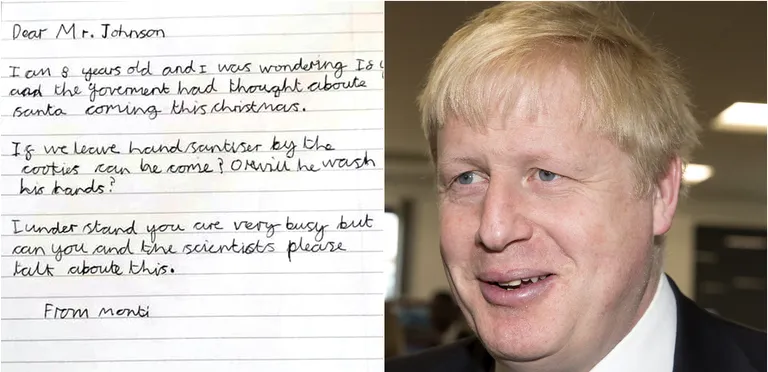 Dear Mr. Johnson
I am 8 years old and I was wondering If y
and the Goverment had thought aboute
santa coming this christmas.
If we leave hand santiser by the
cookies can he come? Or will he wash
his hands?
I under stand you are very busy but
can you and the scientists please
talk aboute this.
From monti